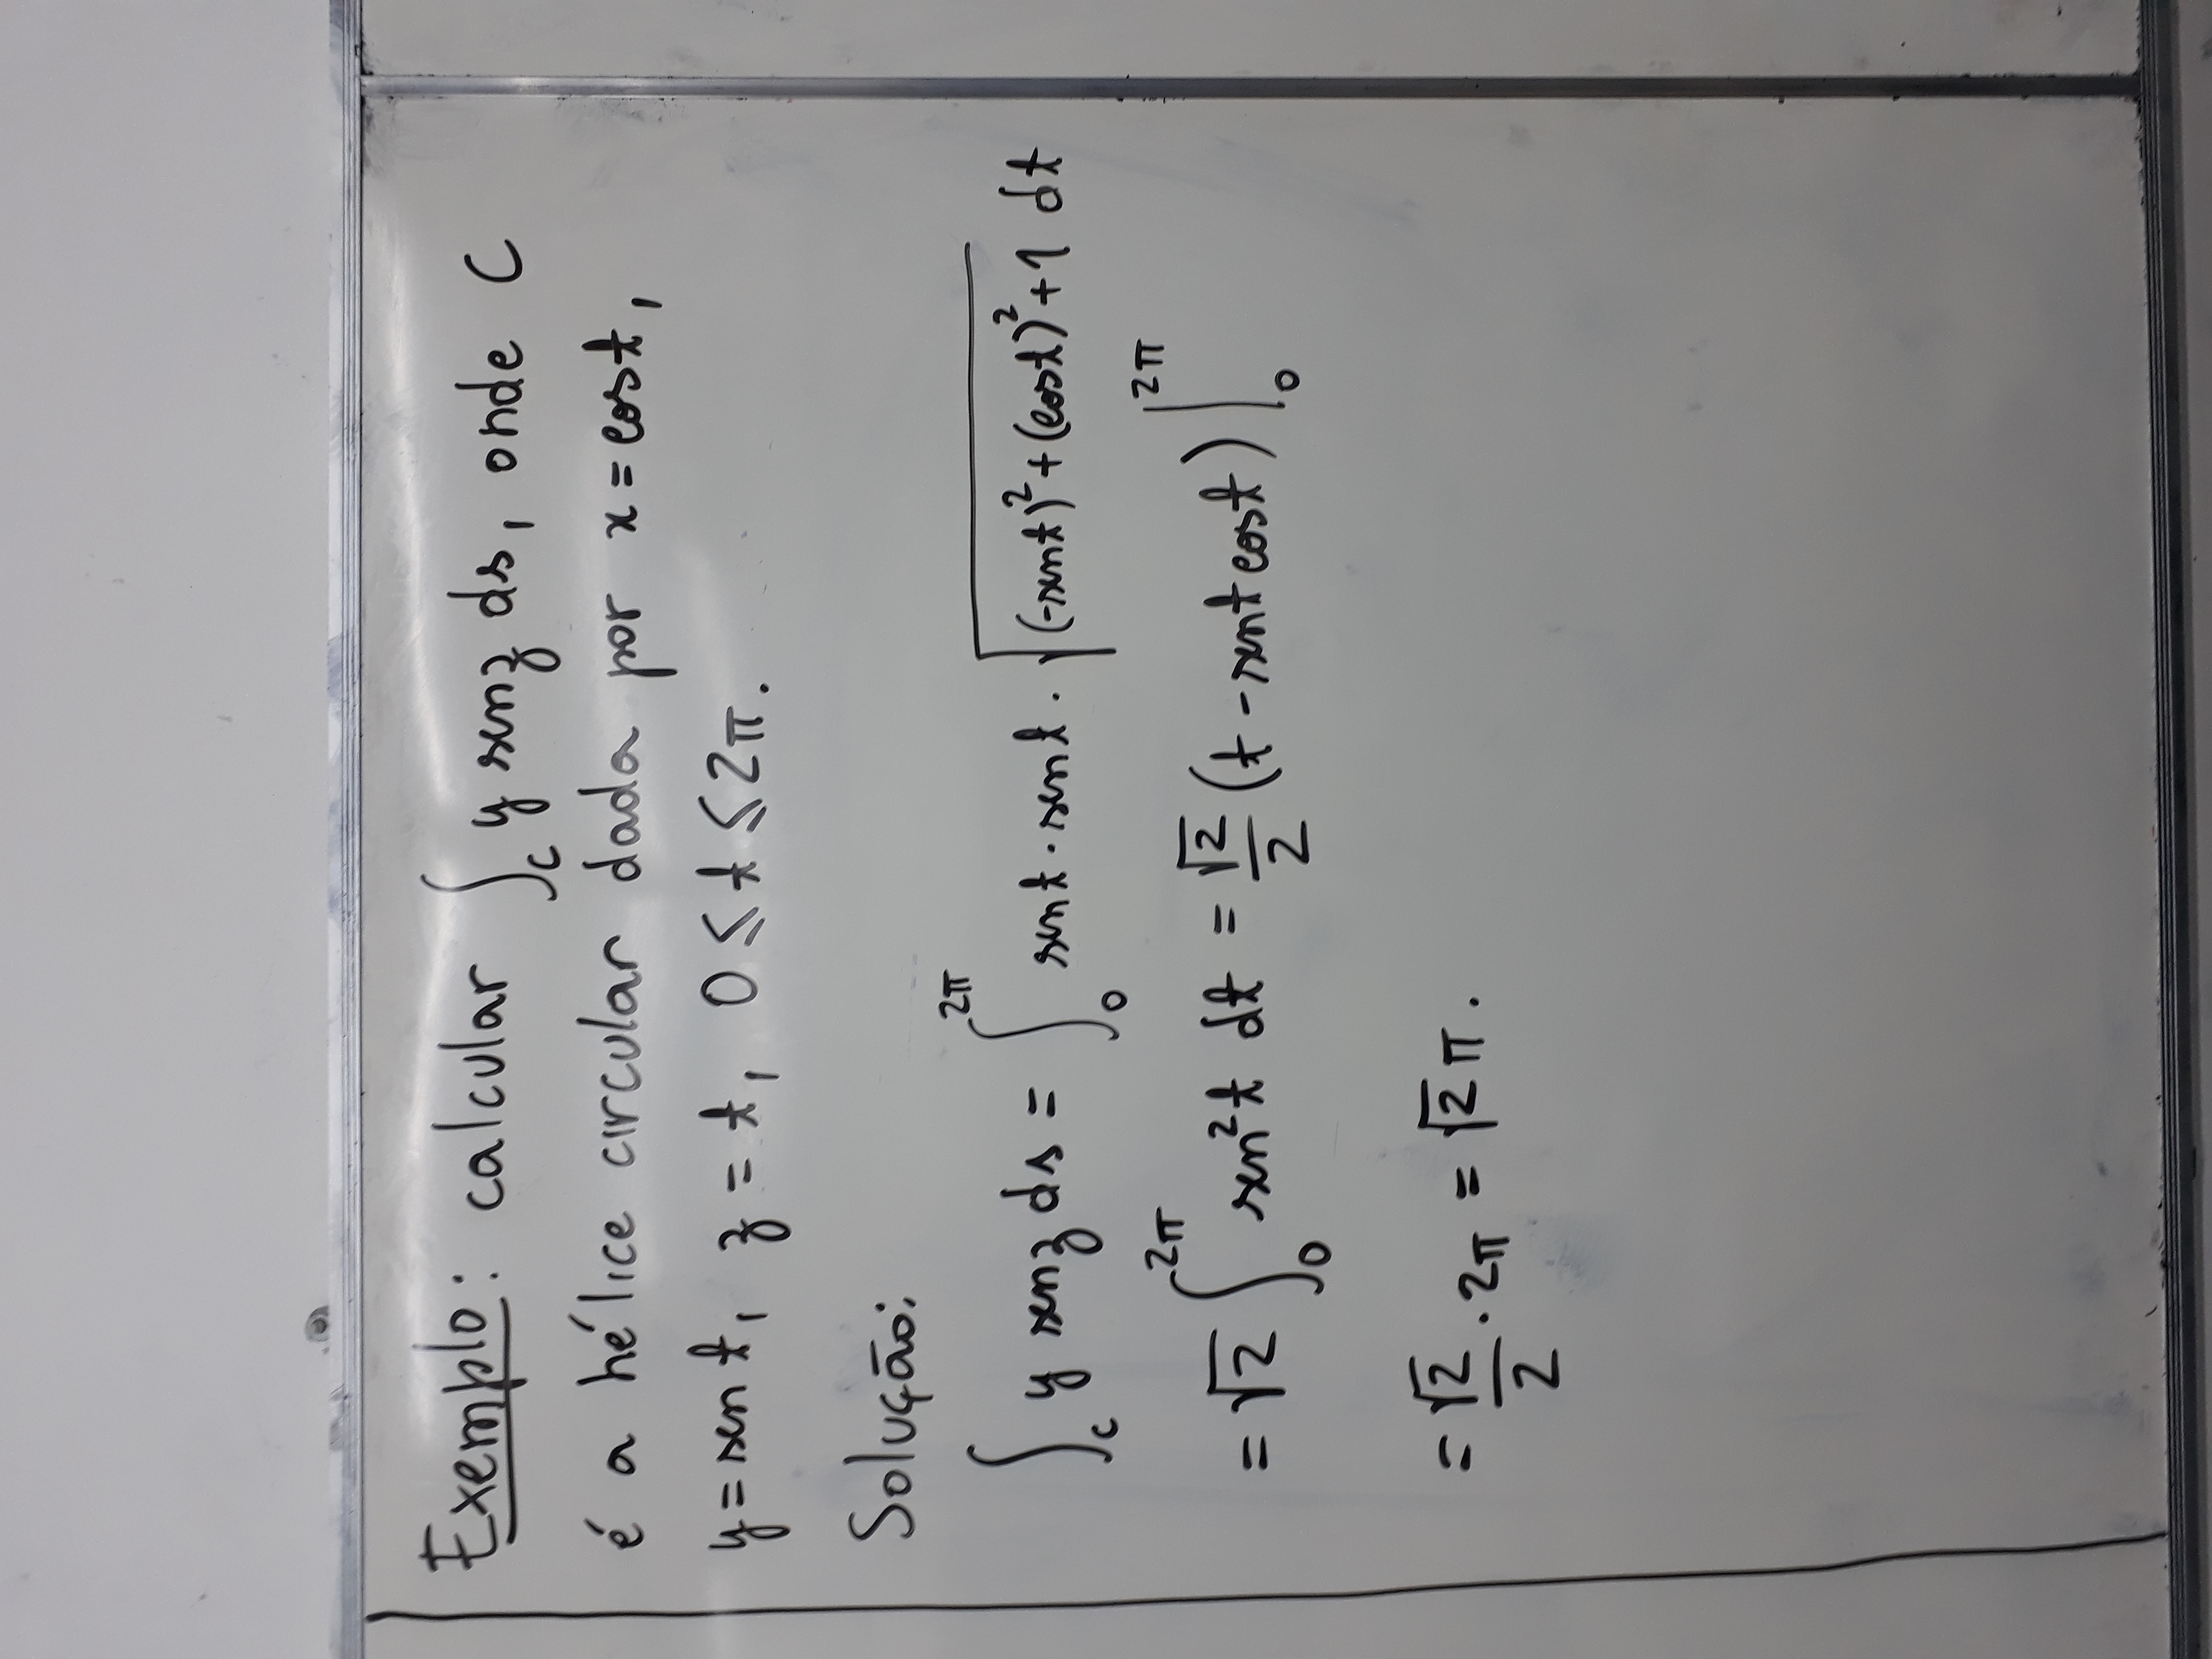 Exemplo: calcular ∫_C y sen z ds, onde C
é a hélice circular dada por x = cos t,
y = sen t, z = t, 0 ≤ t ≤ 2π.
Solução:
∫_C y sen z ds = ∫_0^{2π} sen t · sen t · √((-sen t)² + (cos t)² + 1) dt
= √2 ∫_0^{2π} sen² t dt = √2/2 (t - sen t cos t) |_0^{2π}
= √2/2 · 2π = √2 π.